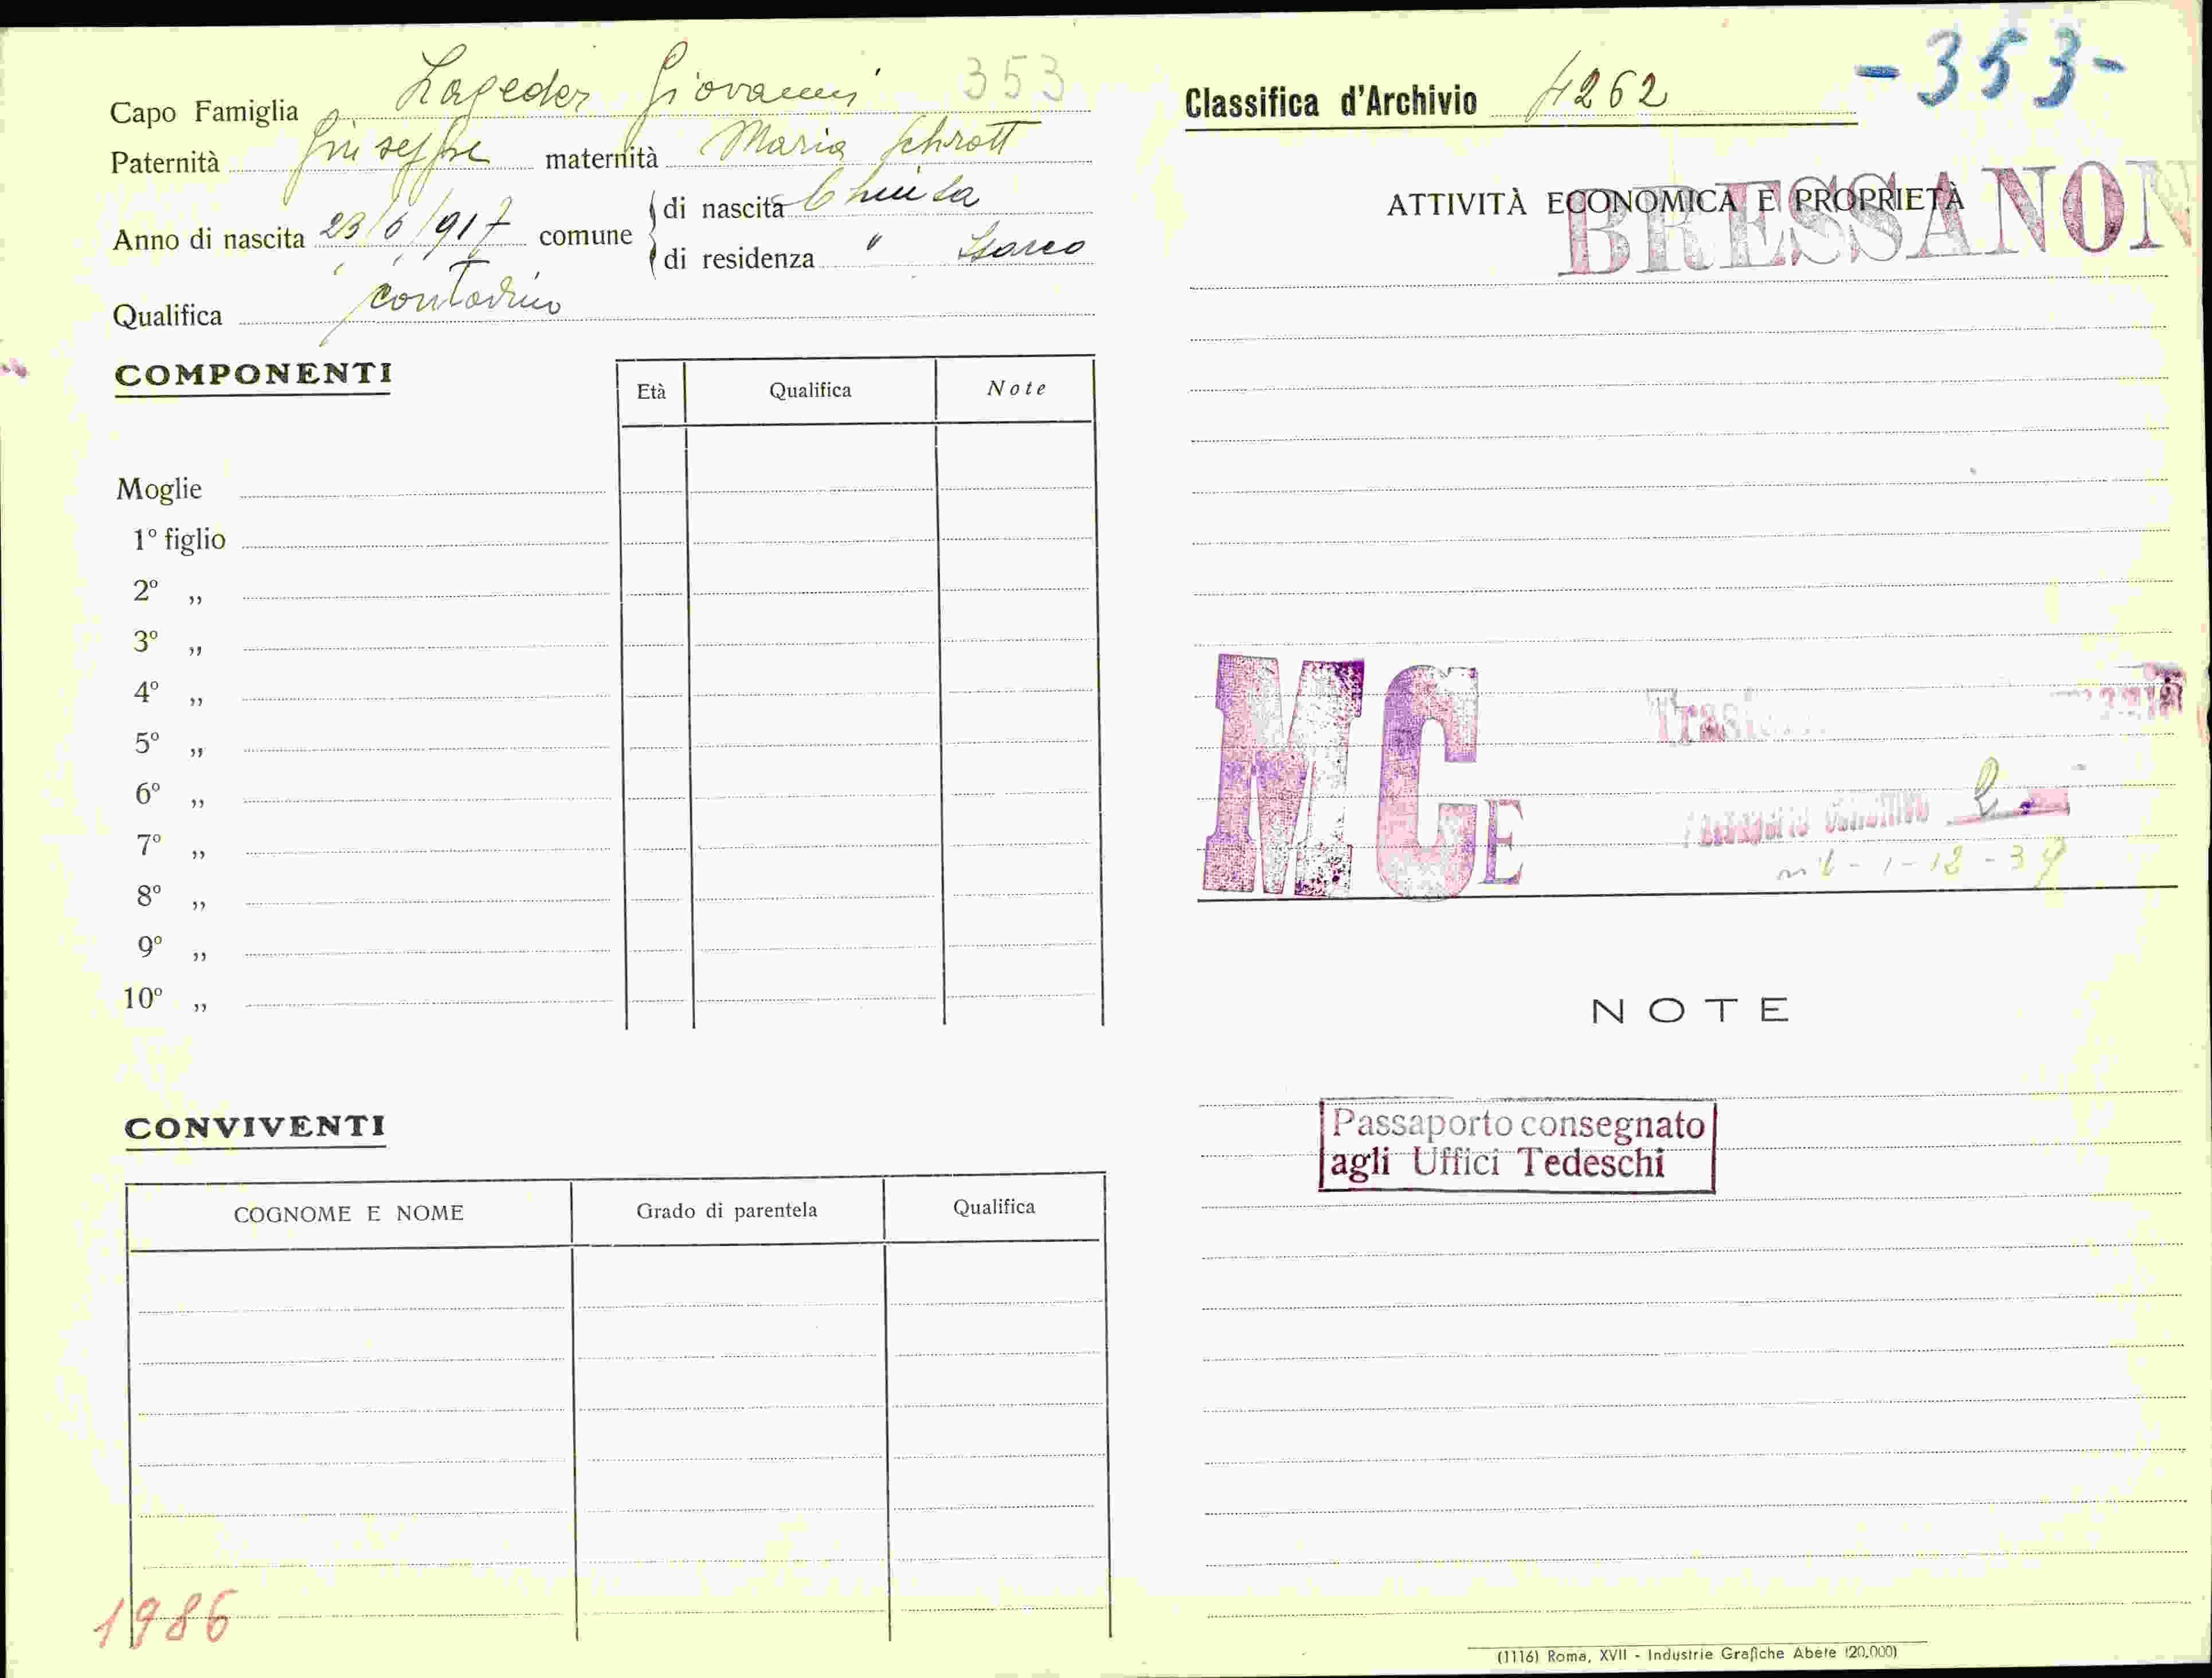 Capo Famiglia Lageder Giovanni 353
Paternità Giuseppe maternità Maria Schrott
Anno di nascita 23/6/917 comune di nascita Chiusa
di residenza " Isarco
Qualifica contadino
COMPONENTI
Età Qualifica Note
Moglie
1° figlio
2° „
3° „
4° „
5° „
6° „
7° „
8° „
9° „
10° „
CONVIVENTI
COGNOME E NOME Grado di parentela Qualifica
1986
Classifica d'Archivio 4262 -353-
ATTIVITÀ ECONOMICA E PROPRIETÀ
BRESSANON
MCE
definitivo
1-12-39
NOTE
Passaporto consegnato
agli Uffici Tedeschi
(1116) Roma, XVII - Industrie Grafiche Abete (20.000)